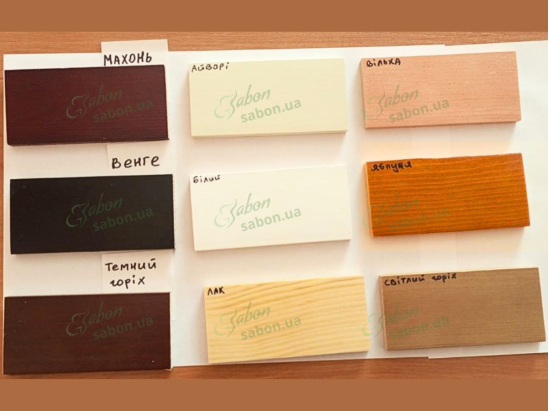 МАХОНЬ
АЙВОРІ
ВІЛЬХА
Sabon
sabon.ua
Sabon
sabon.ua
Sabon
sabon.ua
ВЕНГЕ
БІЛИЙ
ЯБЛУНЯ
Sabon
sabon.ua
Sabon
sabon.ua
Sabon
sabon.ua
ТЕМНИЙ
горіх
ЛАК
СВІТЛИЙ горіх
Sabon
sabon.ua
Sabon
sabon.ua
Sabon
sabon.ua